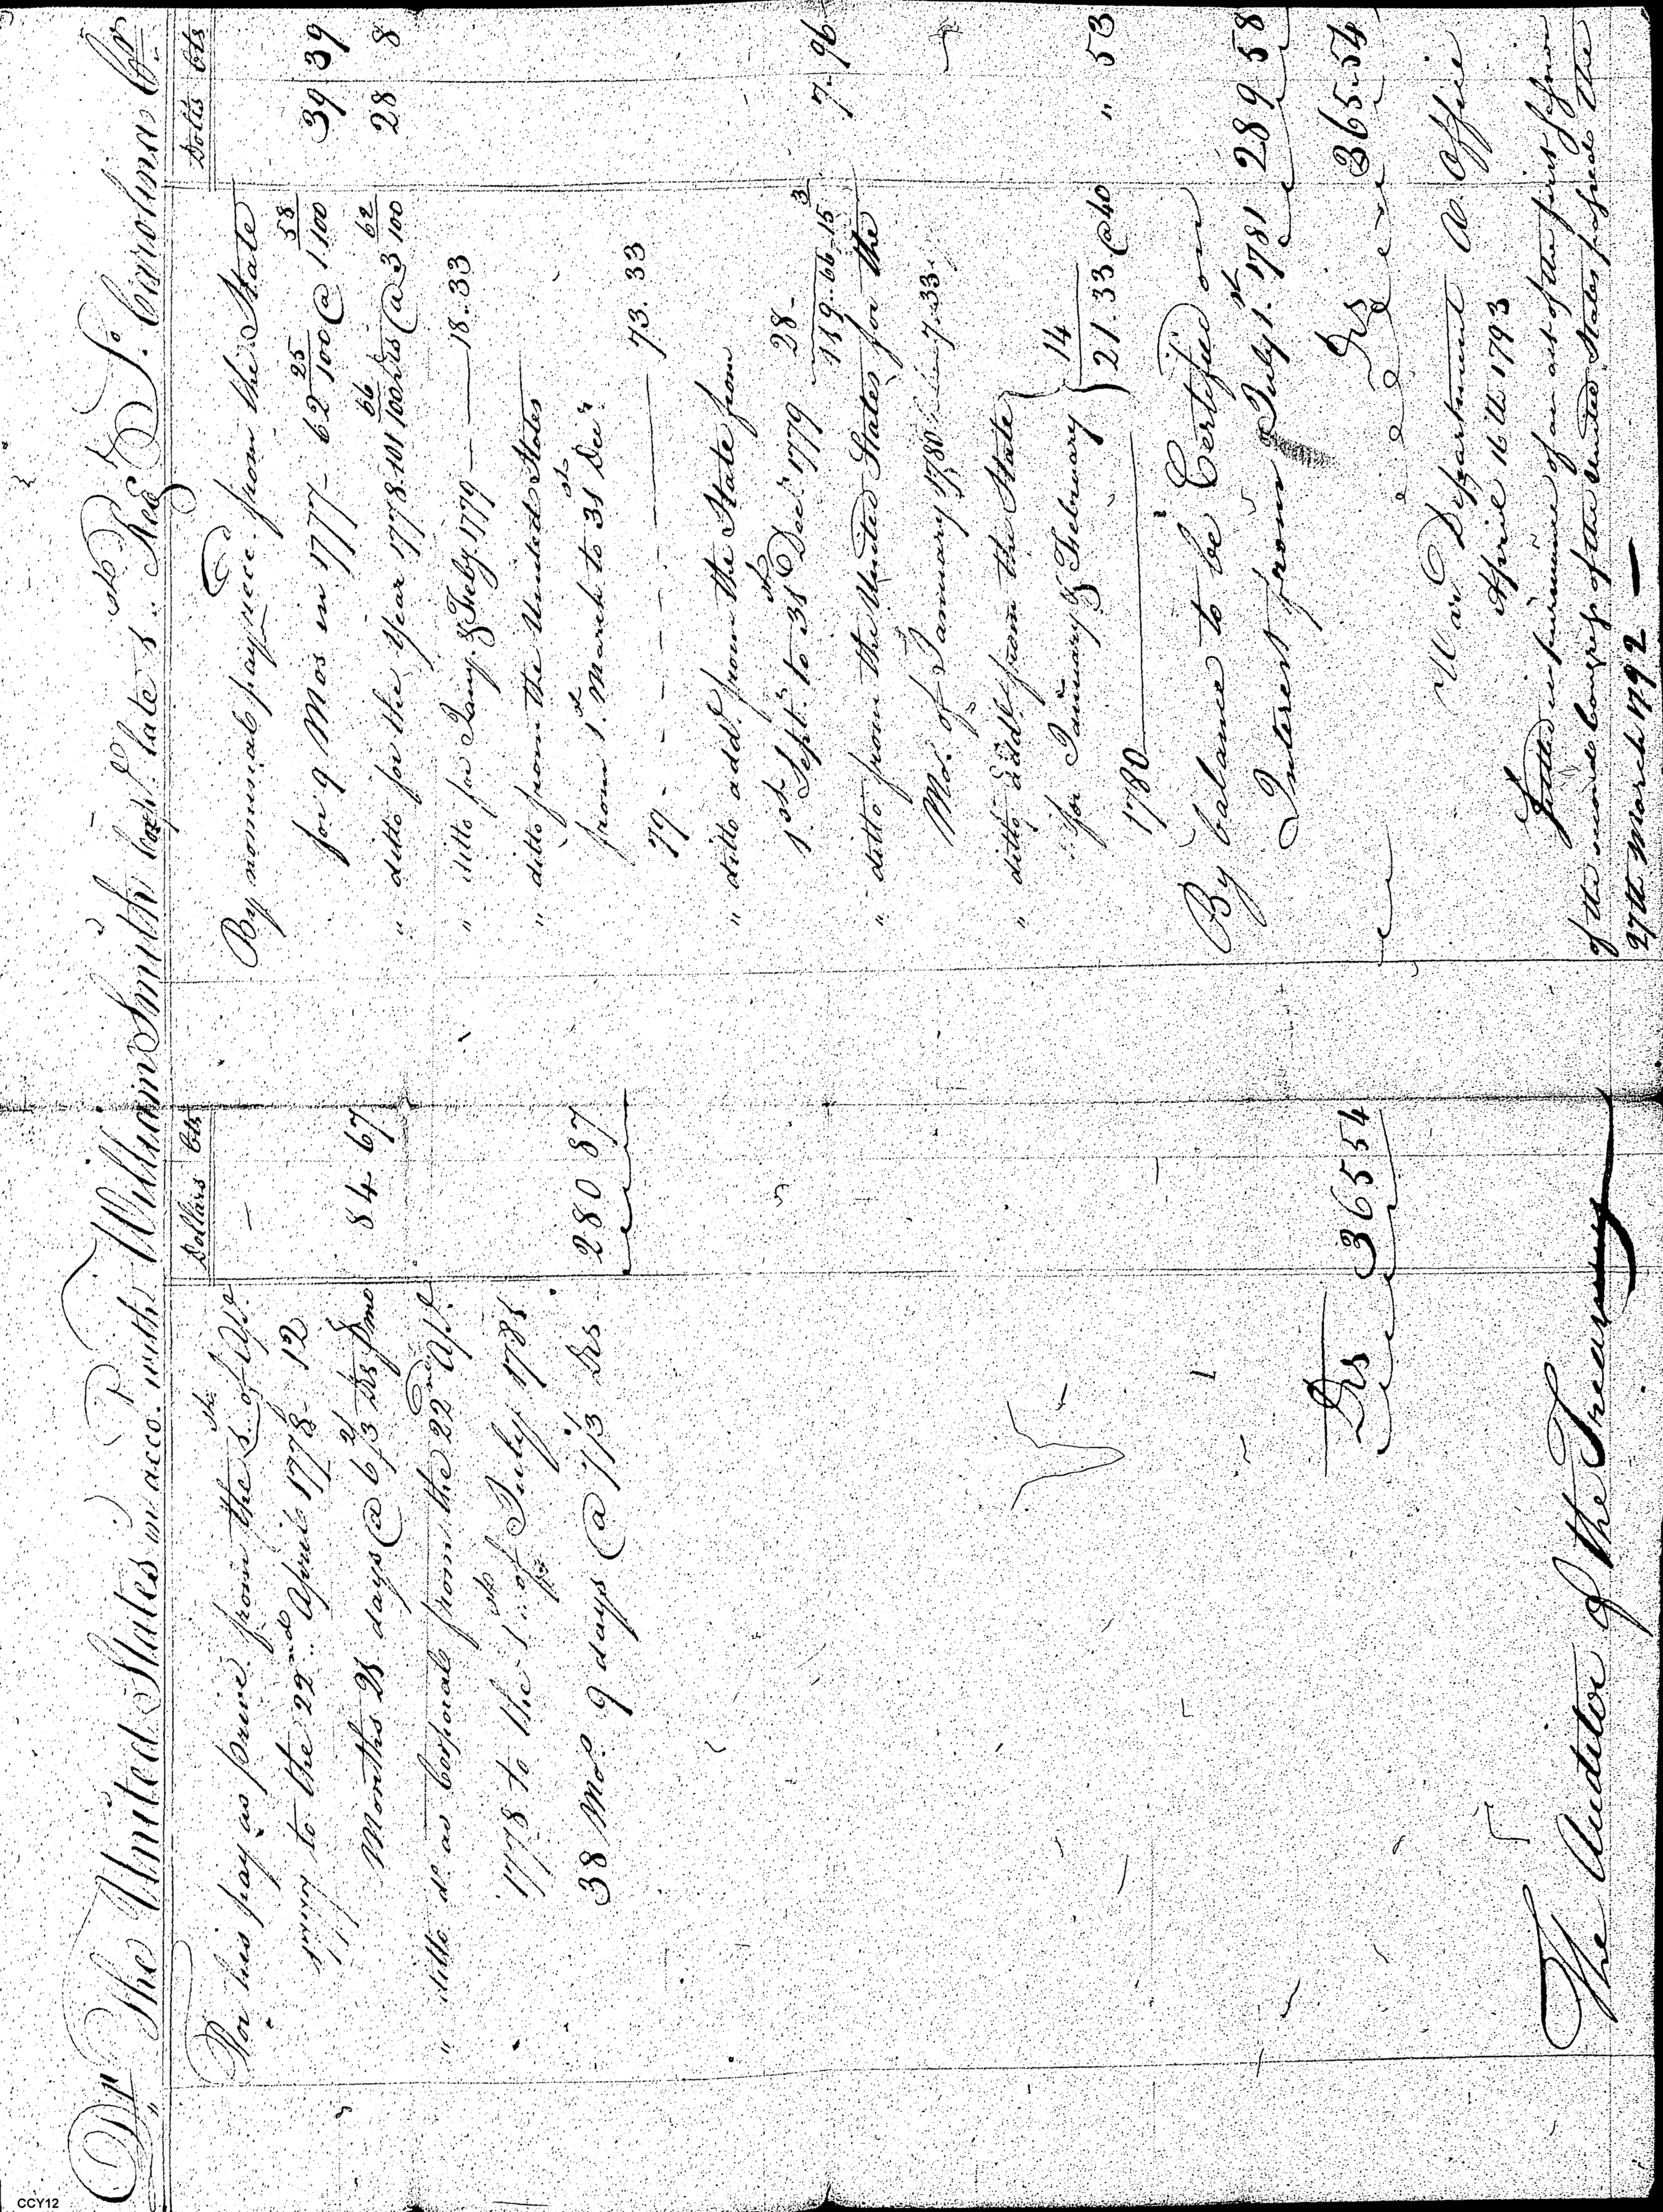 Dr The United States in acco. with William Smith Corpl. late 1st Regt So. Carolina Cr
Dollars Cts
For his pay as private from the 1st of Apl.
1777 to the 22nd April 1778 12
Months 21 days @ 6 2/3 Drs pr mo 84 67
" ditto do as Corporal from the 22nd Apl.
1778 to the 1st of July 1781
38 Mos. 9 days @ 7 1/3 Drs 280 87
Drs 365 54
The Auditor of the Treasury
Dolls Cts
By nominal pay rece. from the State
for 9 Mos in 1777 - 62 25/100 @ 1 58/100 39 39
" ditto for the Year 1778 101 66/100 drs @ 3 62/100 28 8
" ditto for Jany. & Feby. 1779 - 18.33
" ditto from the United States
from 1st March to 31st Decr.
79 - - - - 73.33
" ditto addl. from the State from
1st Sept. to 31st Decr. 1779 28 -
119..66 15 3 7.96
" ditto from the United States for the
Mo. of January 1780 7.33
" ditto addl from the State
for January & February } 14
1780 21.33 @ 40 " 53
By balance to be Certified on
Interest from July 1st 1781 289 58
Drs 365.54
War Department A. Office
April 16th 1793
Settled in pursuance of an act of the first session
of the second Congress of the United States passed the
27th March 1792 —
CCY12